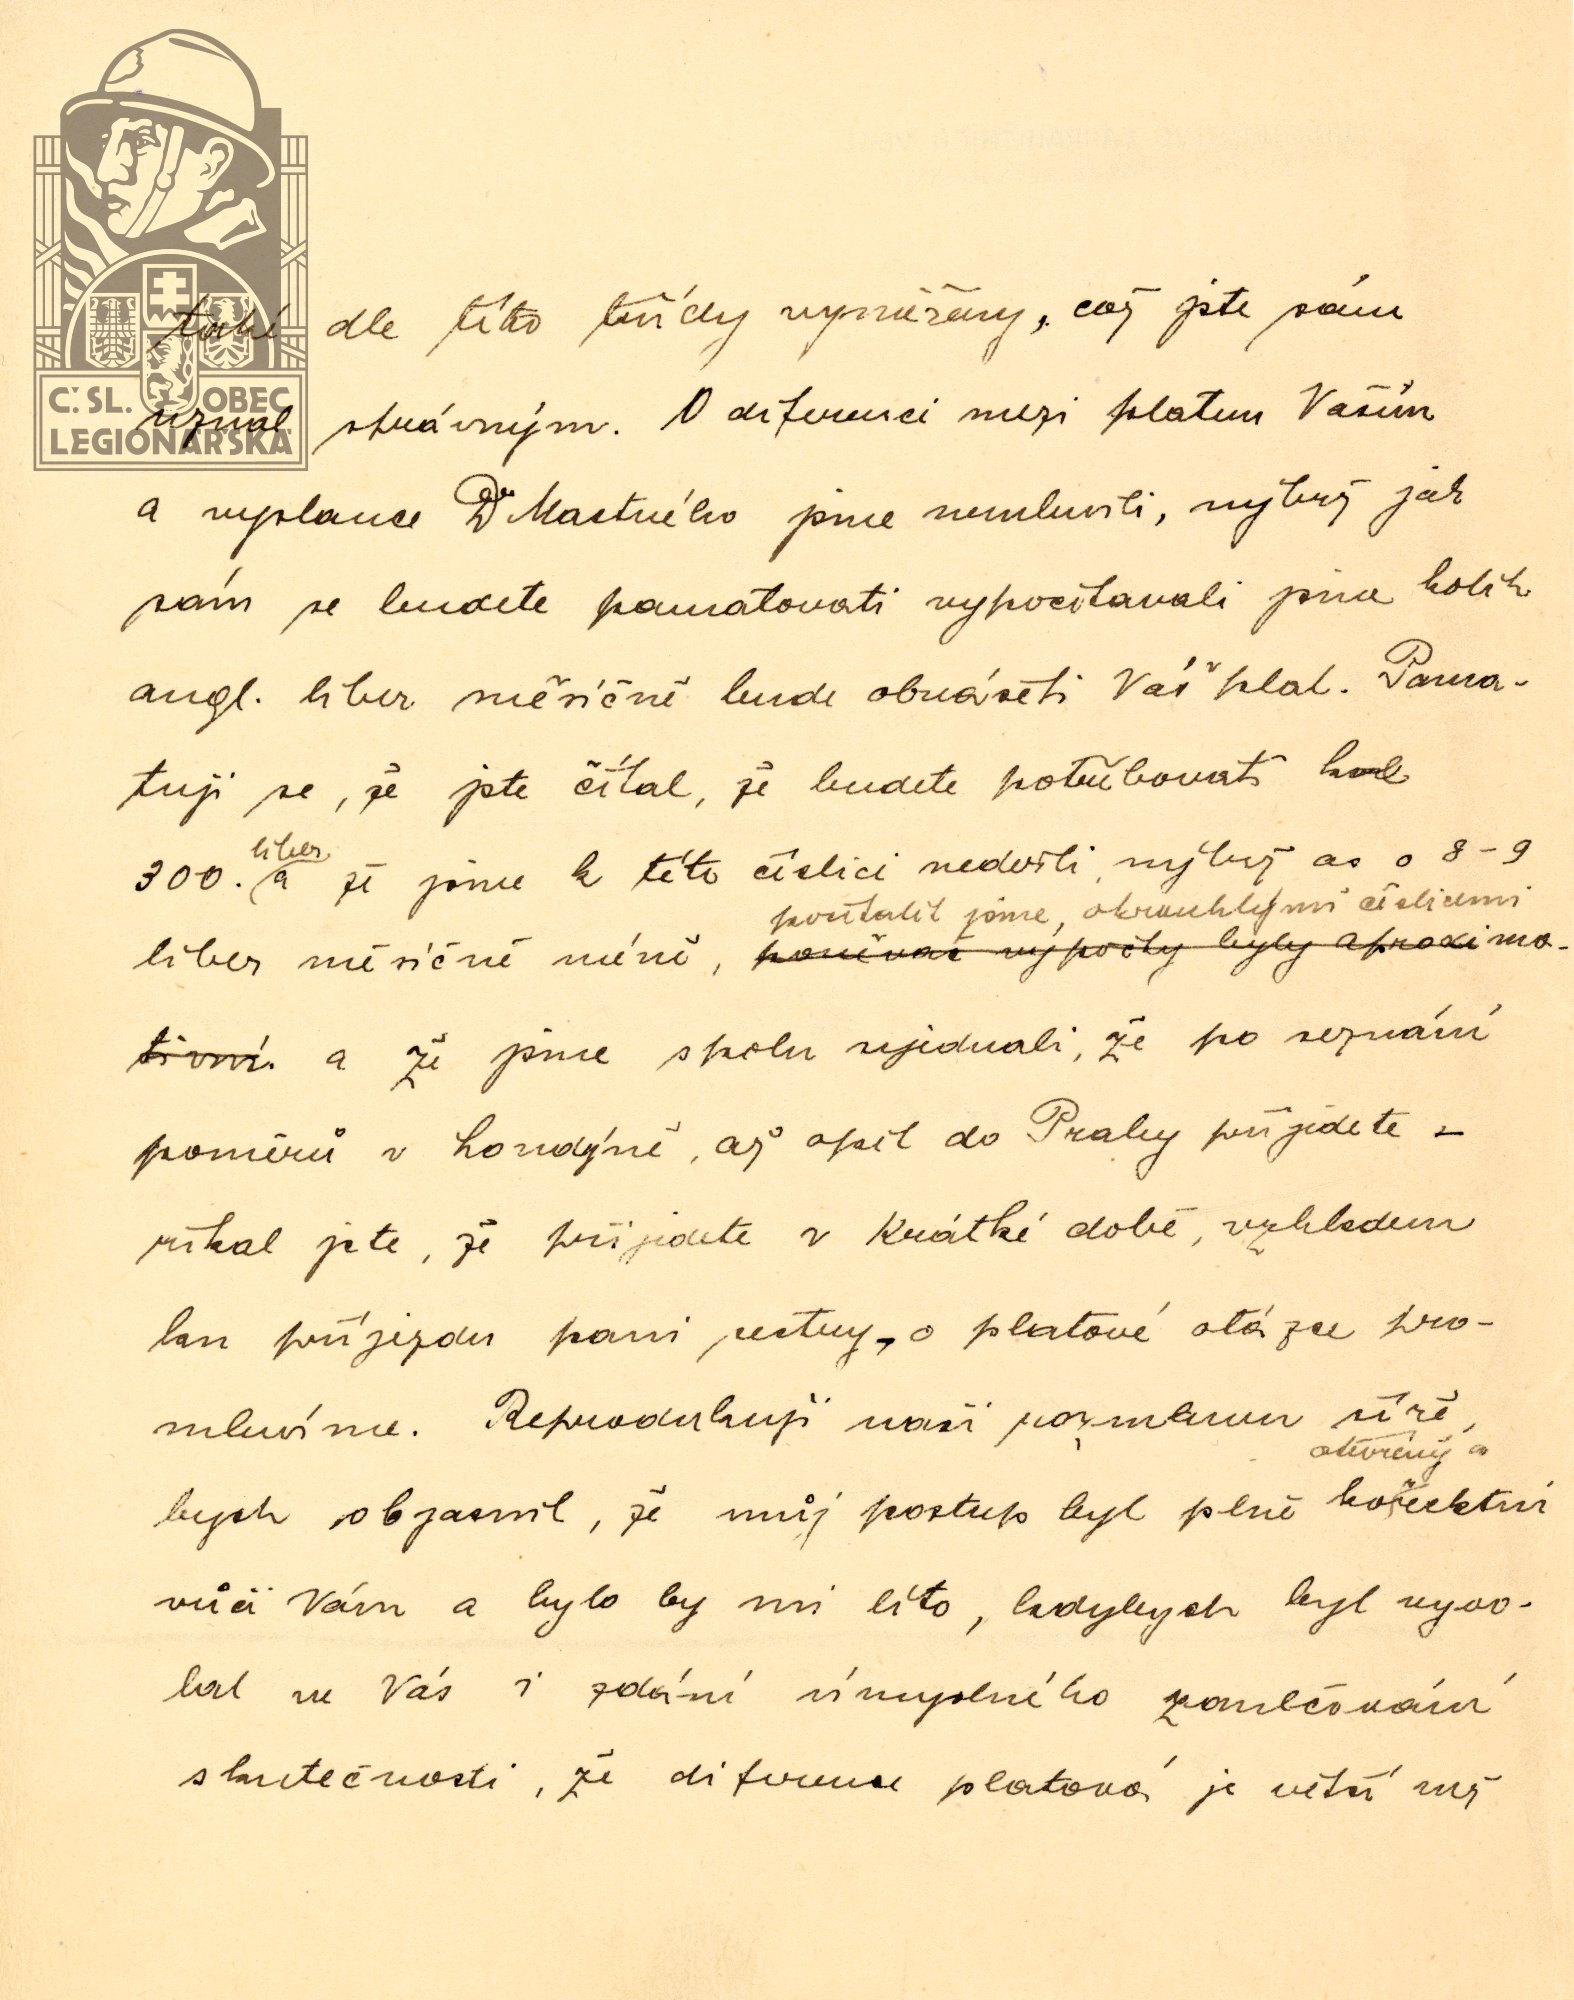 Č. SL. OBEC
LEGIONÁŘSKÁ
také dle této třídy vyměřeny, což jste sám
uznal správným. O diferenci mezi platem Vaším
a vyslance Dr Mastného jsme nemluvili, nýbrž jak
sám se budete pamatovati vypočítavali jsme kolik
angl. liber měsíčně bude obnášeti Váš plat. Pama-
tuji se, že jste čítal, že budete potřebovati kol
liber
300. a že jsme k této číslici nedošli, nýbrž as o 8-9
počítali jsme, okrouhlými číslicemi
liber měsíčně méně, poněvač výpočty byly aproxima-
tivní. a že jsme spolu ujednali, že po seznání
poměrů v Londýně, až opět do Prahy přijedete -
říkal jste, že přijedete v krátké době, vzhledem
ku příjezdu paní sestry, o platové otázce pro-
mluvíme. Reprodukuji naši rozmluvu šíře,
otevřený a
bych objasnil, že můj postup byl plně korektní
vůči Vám a bylo by mi líto, kdybych byl vyvo-
lal ve Vás i zdání úmyslného zamlčování
skutečnosti, že diference platová je větší než